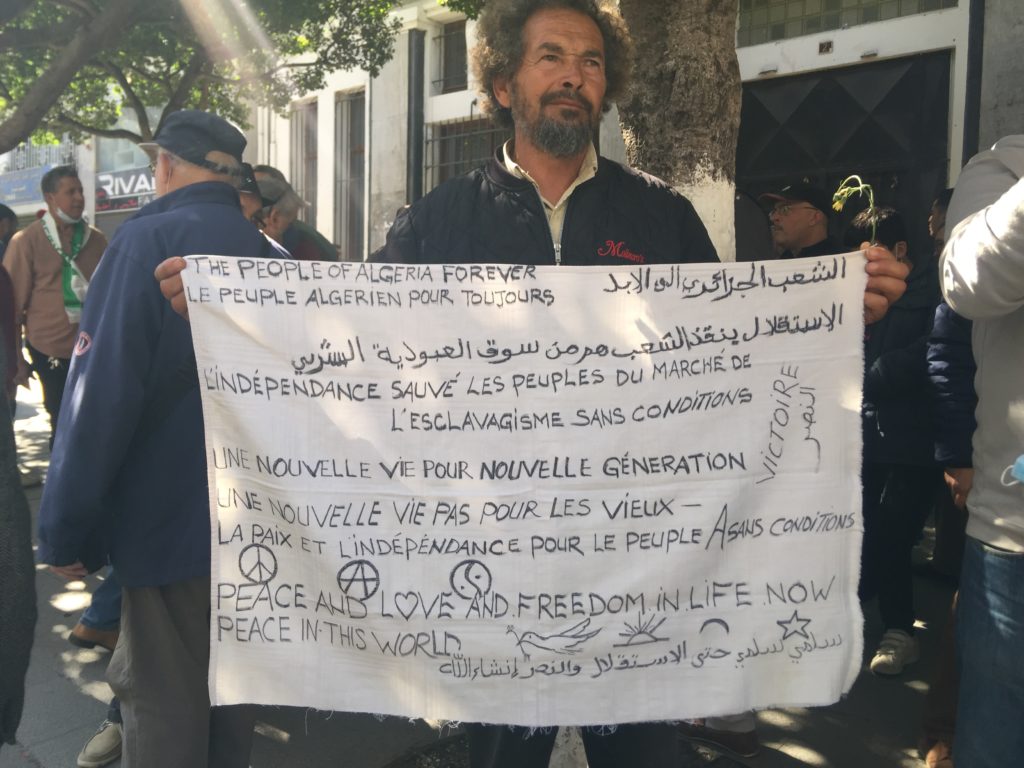 THE PEOPLE OF ALGERIA FOREVER
الشعب الجزائري الى الابد
LE PEUPLE ALGÉRIEN POUR TOUJOURS
الإستقلال ينقذ الشعب هر من سوق العبودية البشري
L'INDÉPENDANCE SAUVÉ LES PEUPLES DU MARCHÉ DE
L'ESCLAVAGISME SANS CONDITIONS
VICTOIRE
النصر
UNE NOUVELLE VIE POUR NOUVELLE GÉNÉRATION
UNE NOUVELLE VIE PAS POUR LES VIEUX –
LA PAIX ET L'INDÉPÉNDANCE POUR LE PEUPLE A SANS CONDITIONS
PEACE AND L♡VE AND.FREEDOM.IN.LIFE.NOW
PEACE IN.THIS WORLD
سلمي سلمي حتى الاستقلال والنصر إنشاء الله
RIVA
2